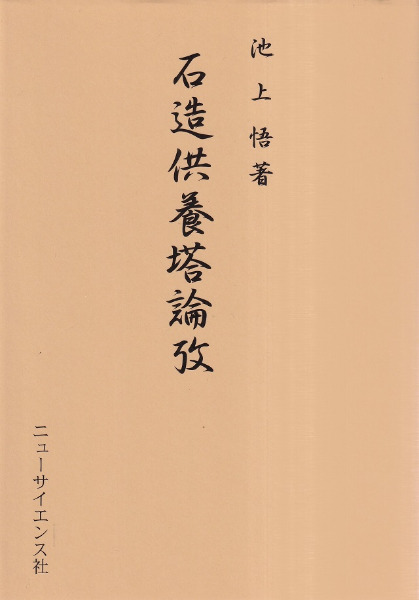 池上悟著
石造供養塔論攷
ニューサイエンス社